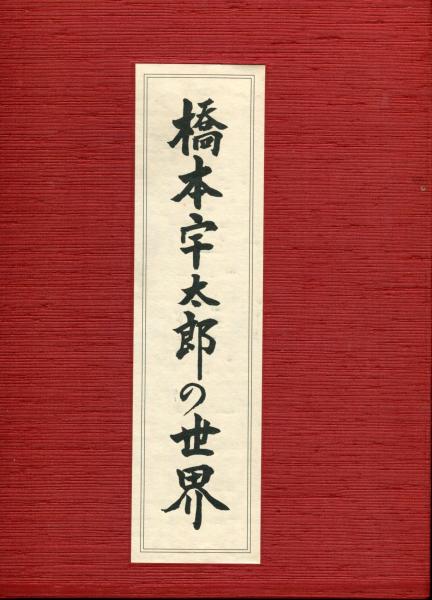 橋本宇太郎の世界